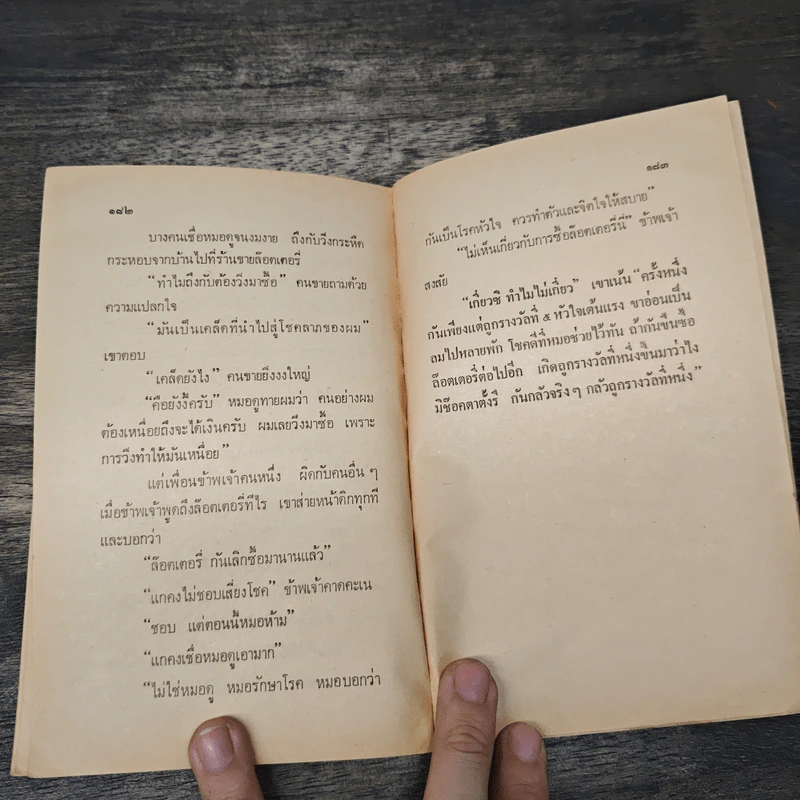 ๑๘๒
บางคนเชื่อหมอดูจนงมงาย ถึงกับวิ่งกระหืด
กระหอบจากบ้านไปที่ร้านขายล๊อตเตอรี่
“ทำไมถึงกับต้องวิ่งมาซื้อ” คนขายถามด้วย
ความแปลกใจ
“มันเป็นเคล็ดที่นำไปสู่โชคลาภของผม”
เขาตอบ
“เคล็ดยังไง” คนขายยิ่งงงใหญ่
“คือยังงี้ครับ” หมอดูทายผมว่า คนอย่างผม
ต้องเหนื่อยถึงจะได้เงินครับ ผมเลยวิ่งมาซื้อ เพราะ
การวิ่งทำให้มันเหนื่อย”
แต่เพื่อนข้าพเจ้าคนหนึ่ง ผิดกับคนอื่น ๆ
เมื่อข้าพเจ้าพูดถึงล๊อตเตอรี่ทีไร เขาส่ายหน้าดิกทุกที
และบอกว่า
“ล๊อตเตอรี่ กันเลิกซื้อมานานแล้ว”
“แกคงไม่ชอบเสี่ยงโชค” ข้าพเจ้าคาดคะเน
“ชอบ แต่ตอนนี้หมอห้าม”
“แกคงเชื่อหมอดูเอามาก”
“ไม่ใช่หมอดู หมอรักษาโรค หมอบอกว่า
๑๘๓
กันเป็นโรคหัวใจ ควรทำตัวและจิตใจให้สบาย”
“ไม่เห็นเกี่ยวกับการซื้อล๊อตเตอรี่นี่” ข้าพเจ้า
สงสัย
“เกี่ยวซิ ทำไมไม่เกี่ยว” เขาเน้น “ครั้งหนึ่ง
กันเพียงแต่ถูกรางวัลที่ ๕ หัวใจเต้นแรง ขาอ่อนเป็น
ลมไปหลายพัก โชคดีที่หมอช่วยไว้ทัน ถ้ากันขืนซื้อ
ล๊อตเตอรี่ต่อไปอีก เกิดถูกรางวัลที่หนึ่งขึ้นมาว่าไง
มิช๊อคตาตั้งรึ กันกลัวจริง ๆ กลัวถูกรางวัลที่หนึ่ง”